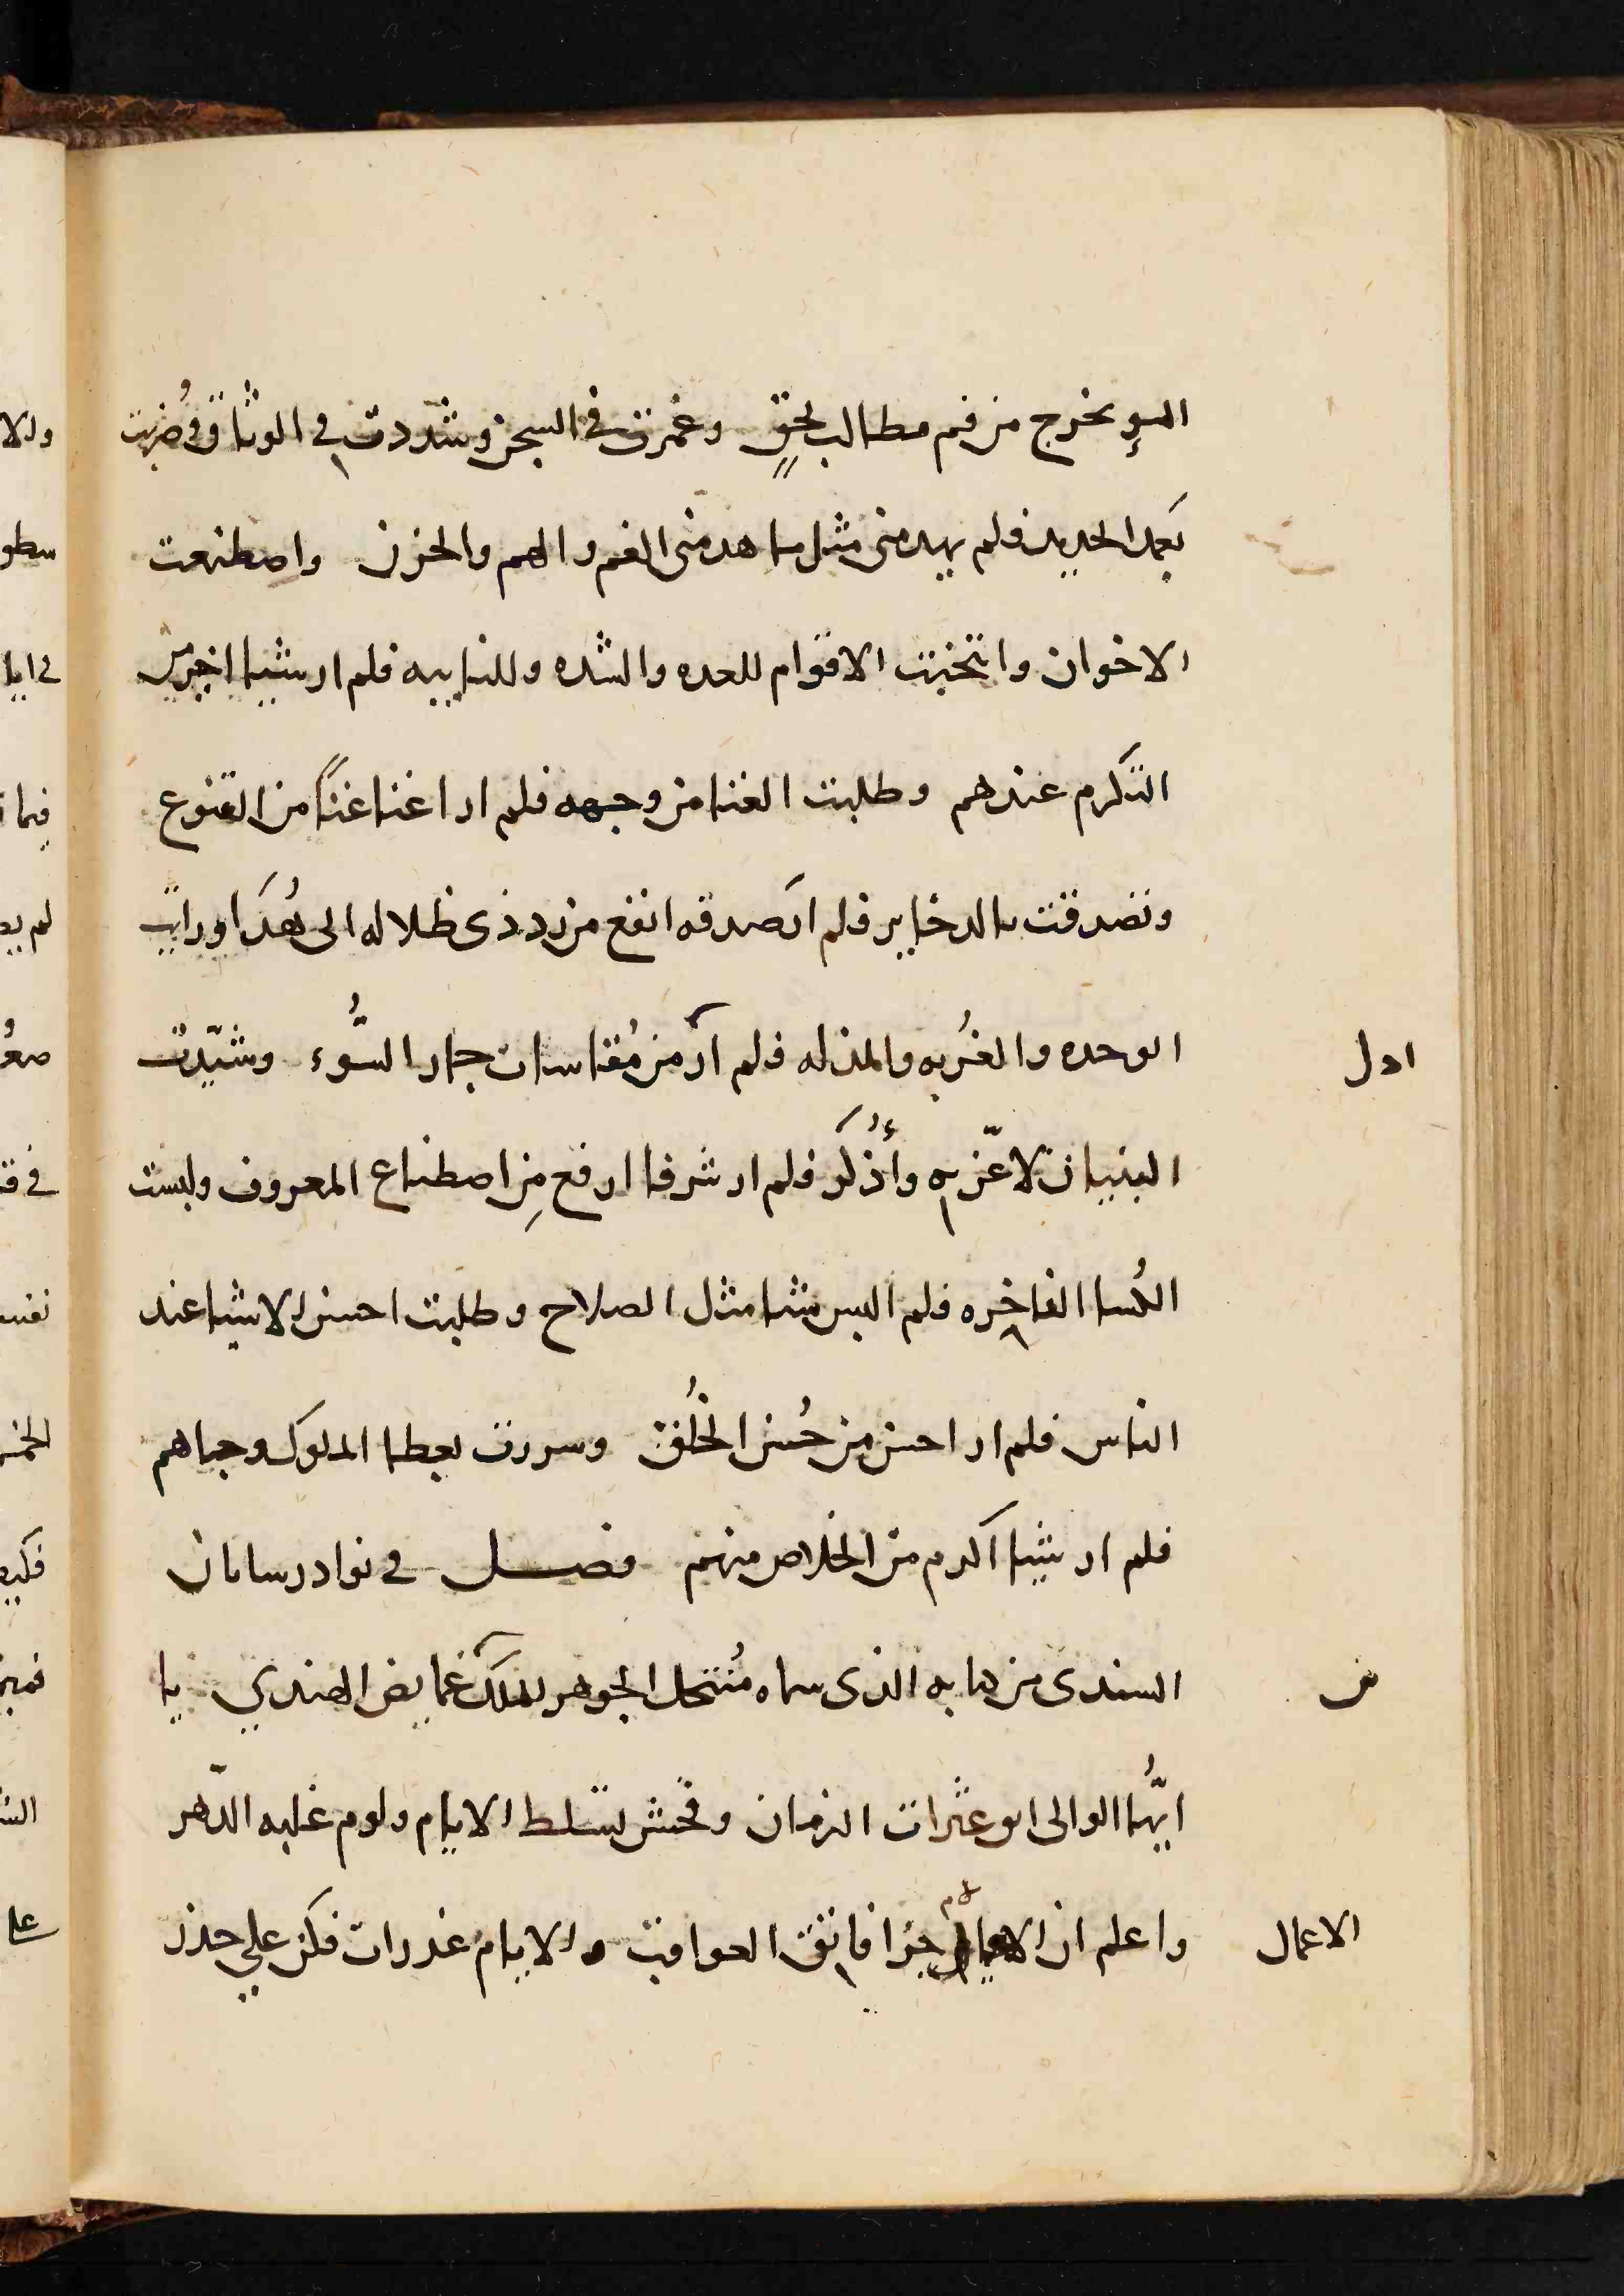 السوِ يخرج من فم مطالب بحقٍ وغُمرت في السجن وشُدّدت في الوثاق وضُربت
بعمد الحديد فلم يهد منى مثل ما هد منى الغم والهم والحزن واصطنعت
الاخوان وانتخبت الاقوام للعده والشده وللنايبه فلم ار شيا اخير من
التكرم عندهم وطلبت الغنا من وجهه فلم ار اغنا غناً من القنوع
وتصدقت بالدخاير فلم ار صدقه انفع من رد ذى ظلاله الى هُدَا ورايت
الوحده والغُربه والمذله فلم آر من مُقاسات جار السُّوء وشيّدت
ادل
البنيان لاعّز به وأُذكَر فلم ار شرفا ارفع مِن اصطناع المعروف ولبست
الكُسا الفاخره فلم البس شيا مثل الصلاح وطلبت احسن الاشيا عند
الناس فلم ار احسن من حُسن الخُلق وسررت بعطا الملوك وحباهم
فلم ار شيا اكرم من الخلاص منهم فصل في نوادر ساناق
السندى من كتابه الذى سماه مُنتحل الجوهر للملك غمايض الهندي يا
ايُّها الوالى اتق عثرات الزمان وفحش تسّلط الايام ولوم غلبه الدّهر
واعلم ان جزا فاتق العواقب والايام غدرات فكن علي حذر
الاعمال